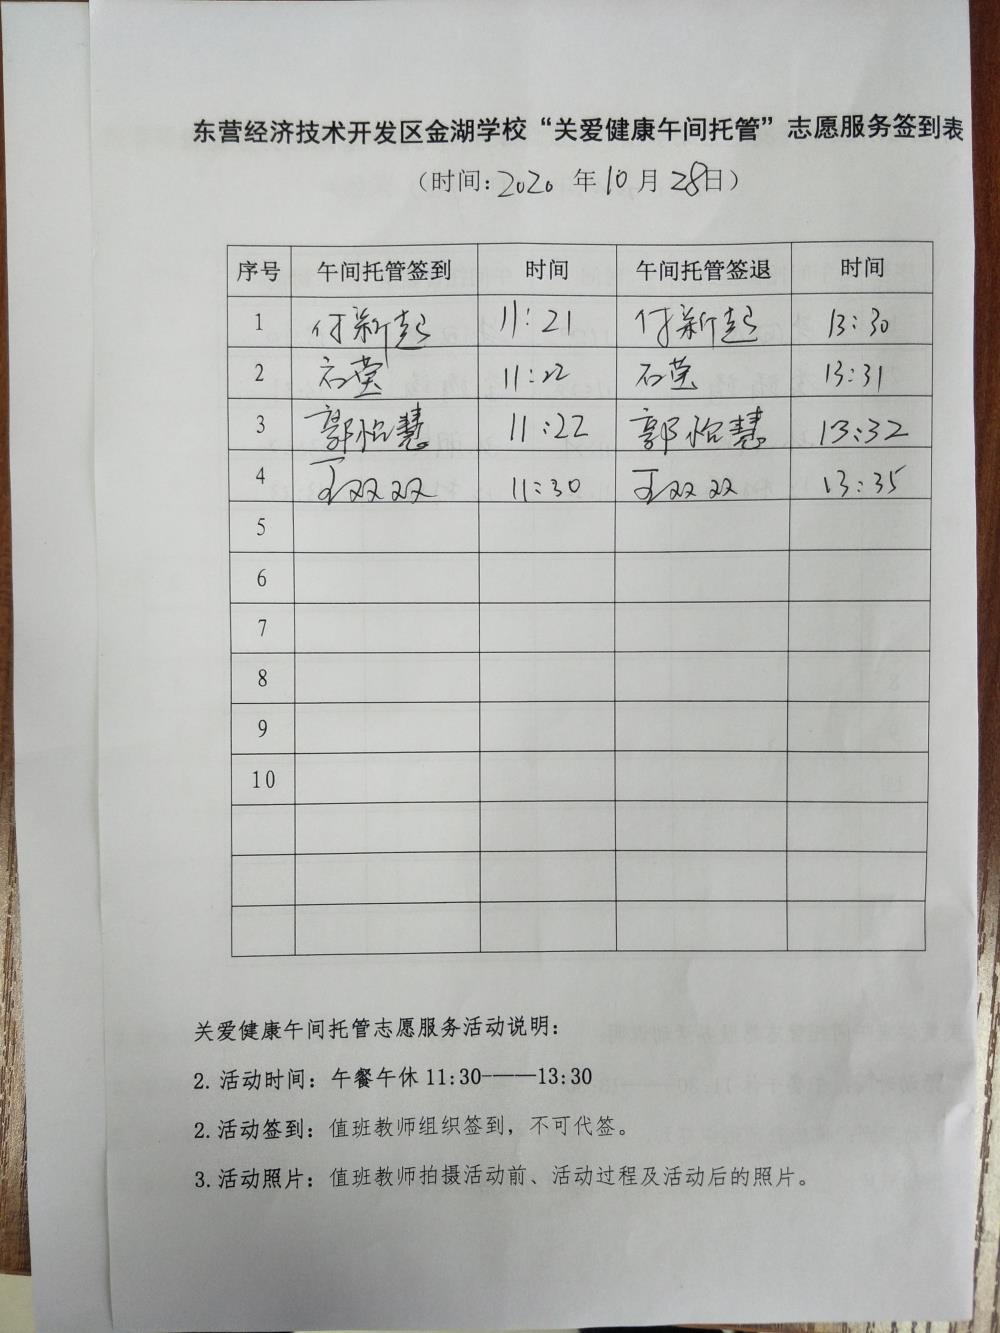 东营经济技术开发区金湖学校“关爱健康午间托管”志愿服务签到表
（时间：2020 年 10 月 28日）
序号 午间托管签到 时间 午间托管签退 时间
1 付新起 11:21 付新起 13:30
2 石莹 11:22 石莹 13:31
3 郭怡慧 11:22 郭怡慧 13:32
4 王双双 11:30 王双双 13:35
5
6
7
8
9
10
关爱健康午间托管志愿服务活动说明：
2. 活动时间：午餐午休 11:30-——13:30
2. 活动签到：值班教师组织签到，不可代签。
3. 活动照片：值班教师拍摄活动前、活动过程及活动后的照片。